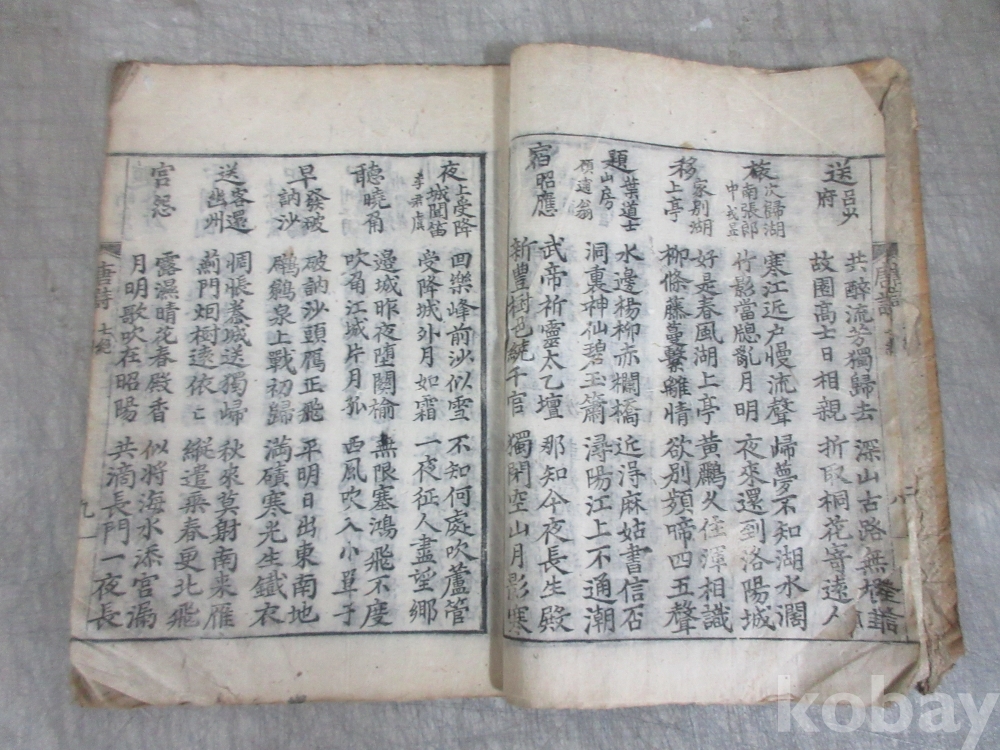 送呂少府
共醉流芳獨歸去
故園高士日相親
深山古路無
折取桐花寄遠人
次歸湖南張郎中 戎昱
寒江近戶慢流聲
竹影當牕亂月明
歸夢不知湖水濶
夜來還到洛陽城
移家別湖上亭
好是春風湖上亭
柳條藤蔓繫離情
黃鸝久住渾相識
欲別頻啼四五聲
題葉道士山房
顧逋翁
水邊楊柳赤欄橋
洞裏神仙碧玉簫
近得麻姑書信否
潯陽江上不通潮
宿昭應
武帝祈靈太乙壇
新豐樹色繞千官
那知今夜長生殿
獨閉空山月影寒
夜上受降城聞笛
李君虞
回樂峰前沙似雪
受降城外月如霜
不知何處吹蘆管
一夜征人盡望鄉
聽曉角
邊城昨夜墮關榆
吹角江城片月孤
無限塞鴻飛不度
西風吹入小單于
早發破訥沙
破訥沙頭鴈正飛
鸊鵜泉上戰初歸
平明日出東南地
滿磧寒光生鐵衣
送客還幽州
惆悵秦城送獨歸
薊門烟樹遠依〻
秋來莫射南來雁
縱遣乘春更北飛
宮怨
露濕晴花春殿香
月明歌吹在昭陽
似將海水添宮漏
共滴長門一夜長
唐詩 七絕 九
kobay